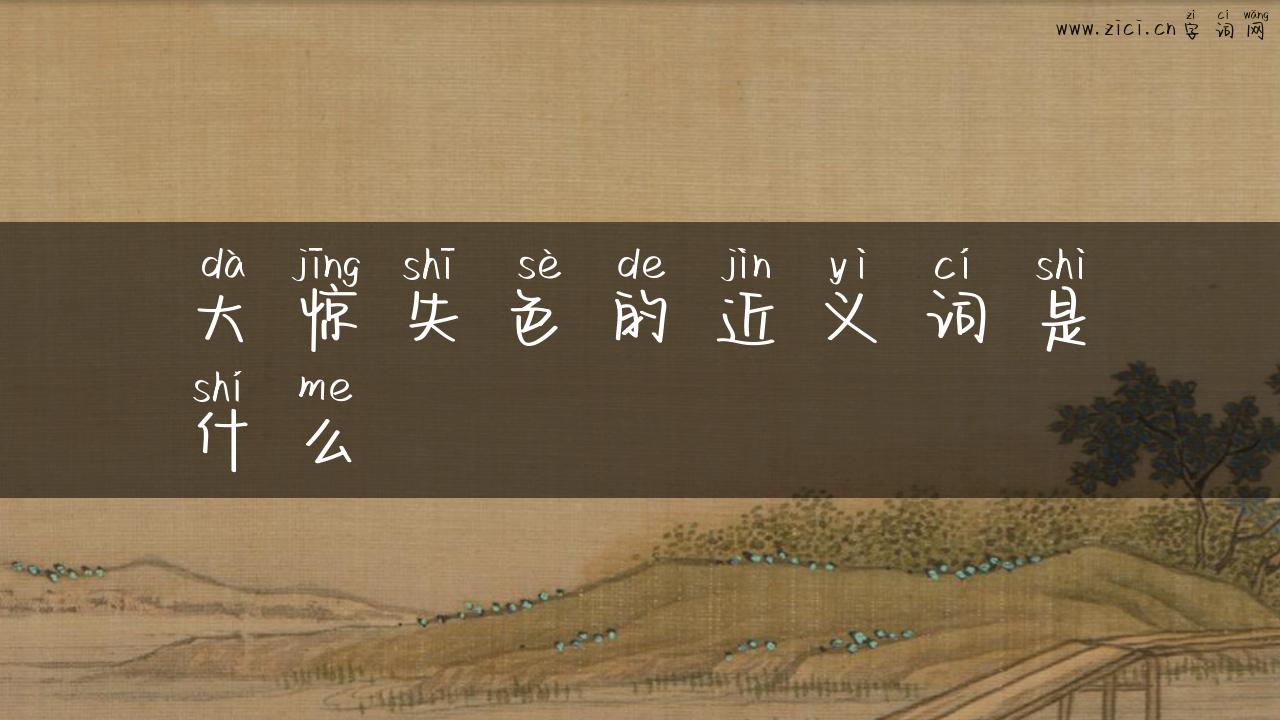 zì cí wǎng
www.zici.cn 字词网
dà jīng shī sè de jìn yì cí shì
大惊失色的近义词是
shí me
什么